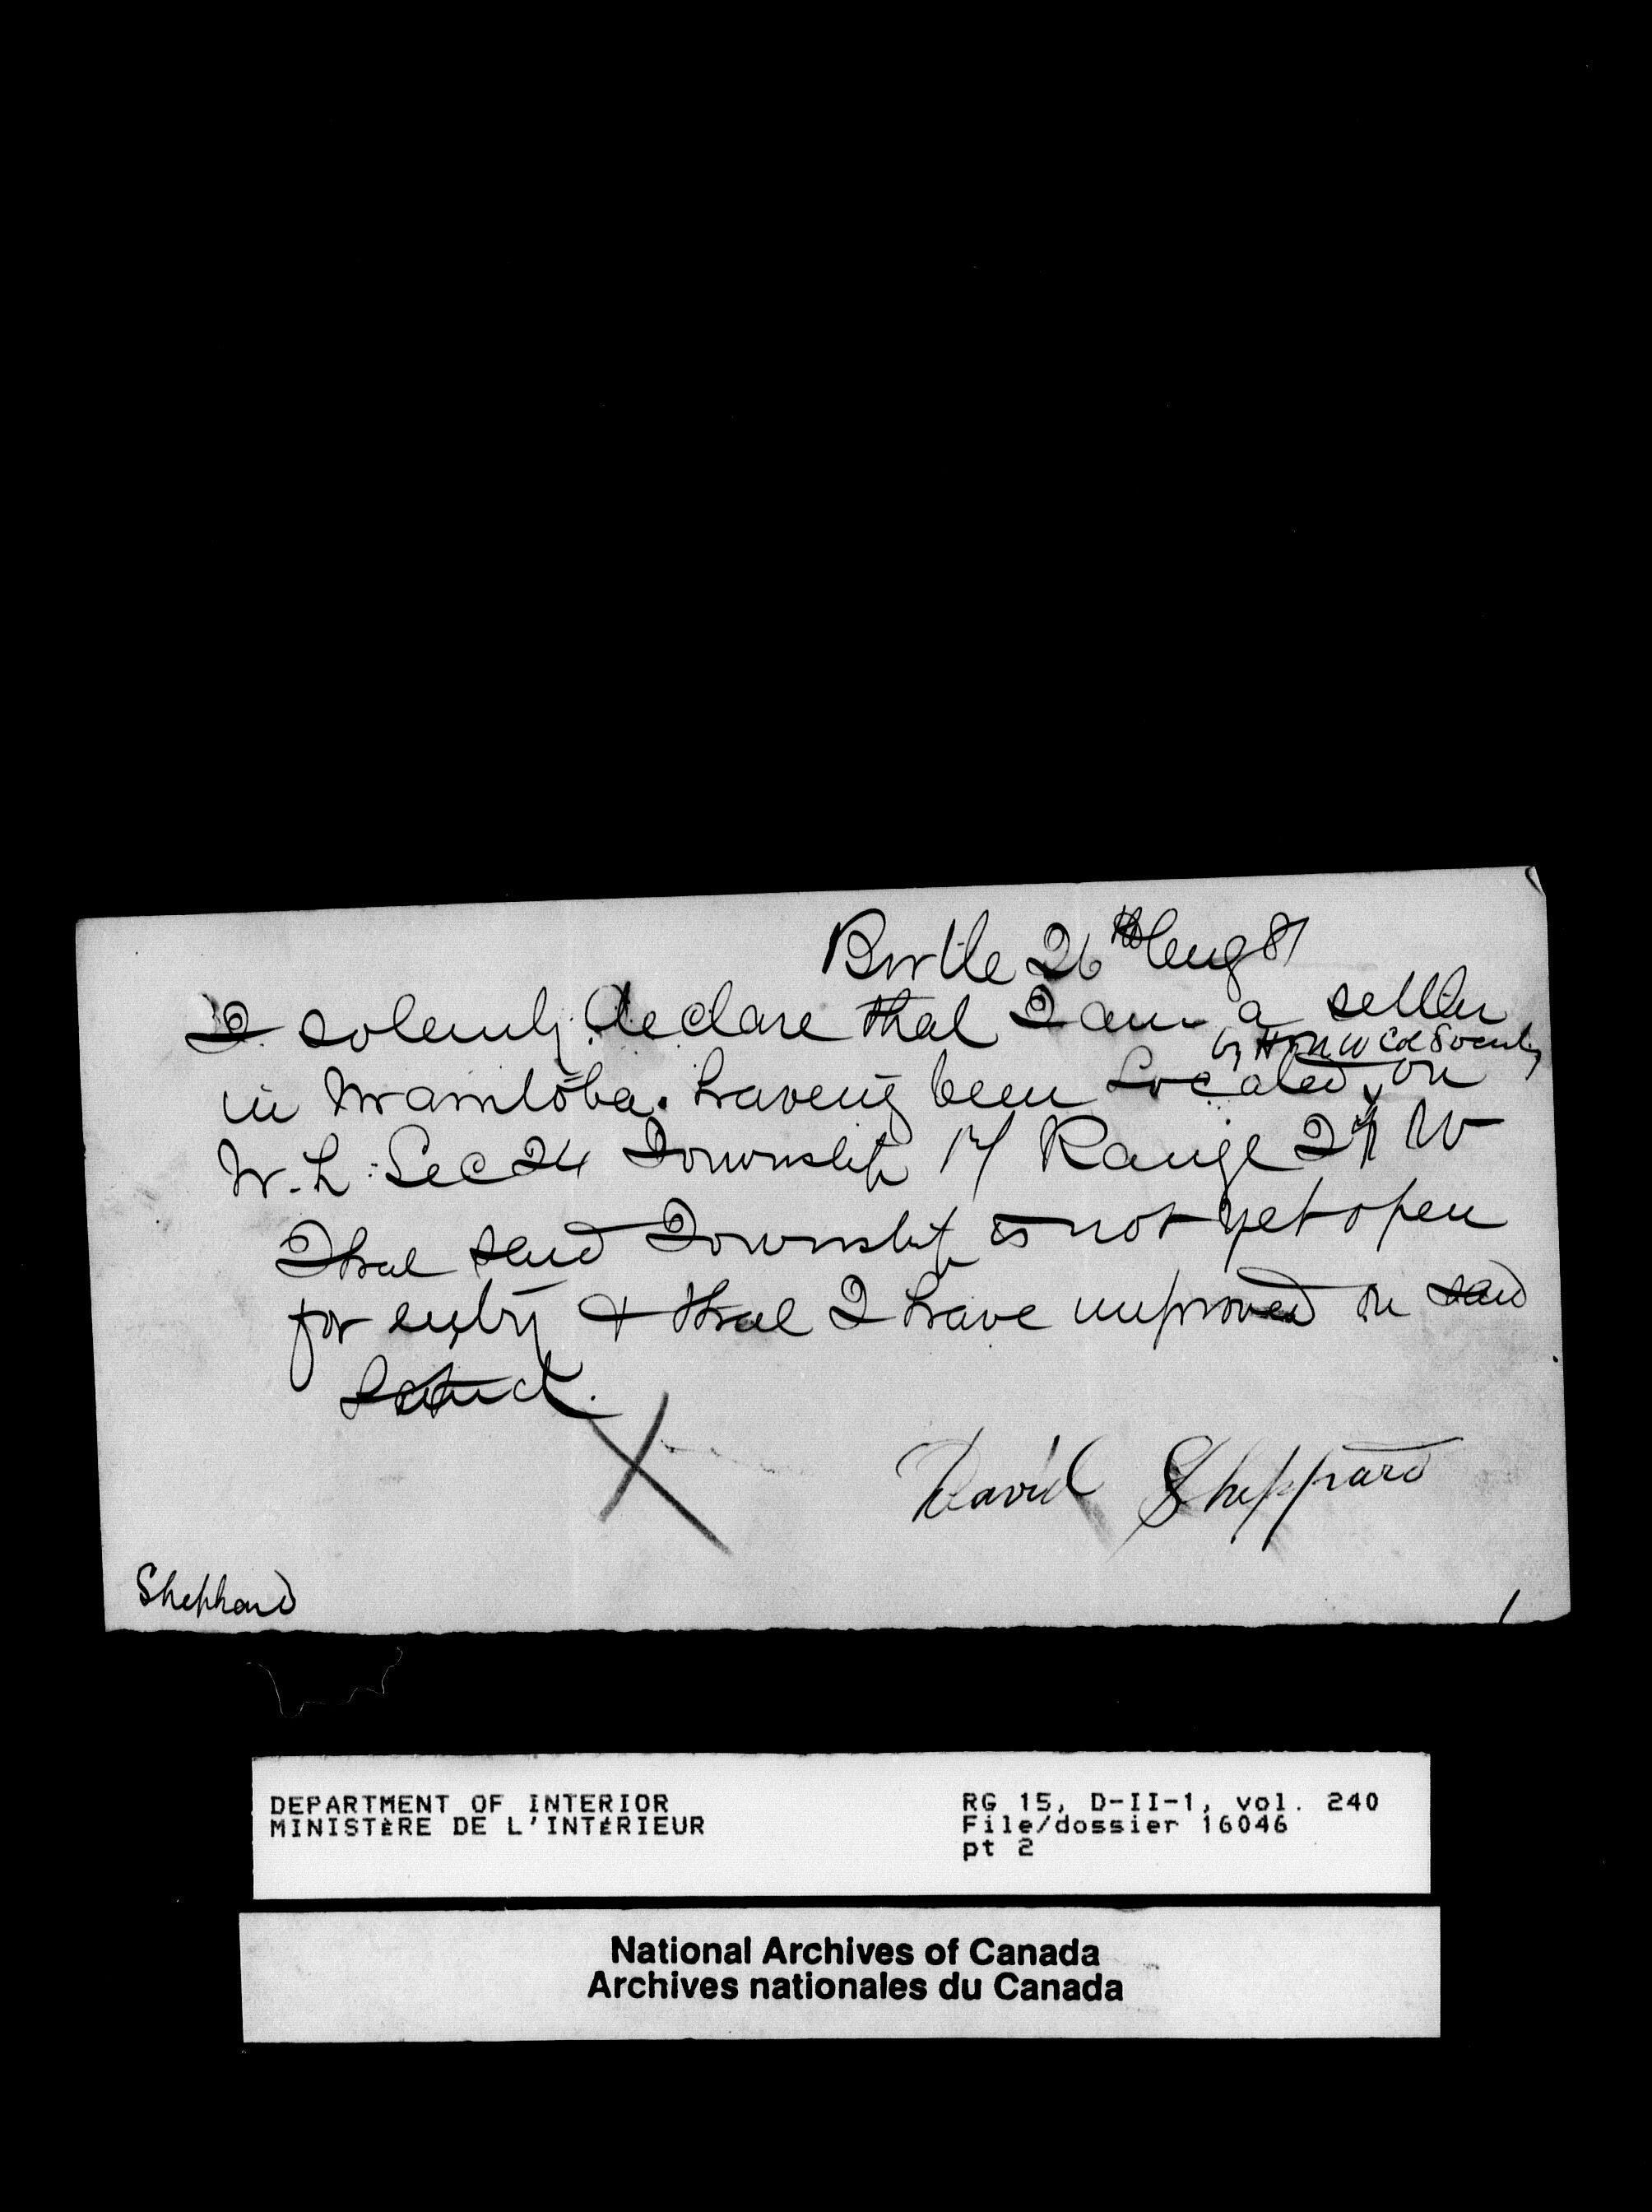 Birtle 26th Aug 81
I solemnly declare that I am a settler
by N W Col Society
in Manitoba. haveing been Located on
Sec 24 Township 17 Range 27 W
That said Township is not yet open
for entry & that I have improved on said
David Sheppard
Shephard
1
DEPARTMENT OF INTERIOR
MINISTÈRE DE L'INTÉRIEUR
RG 15, D-II-1, vol. 240
File/dossier 16046
pt 2
National Archives of Canada
Archives nationales du Canada